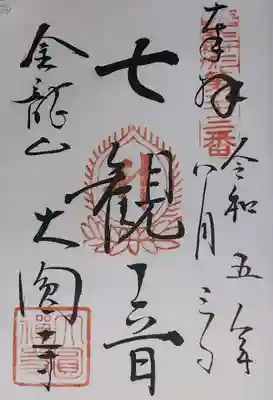 奉拝
令和五年
八月三日
七観音
金龍山
大圓寺